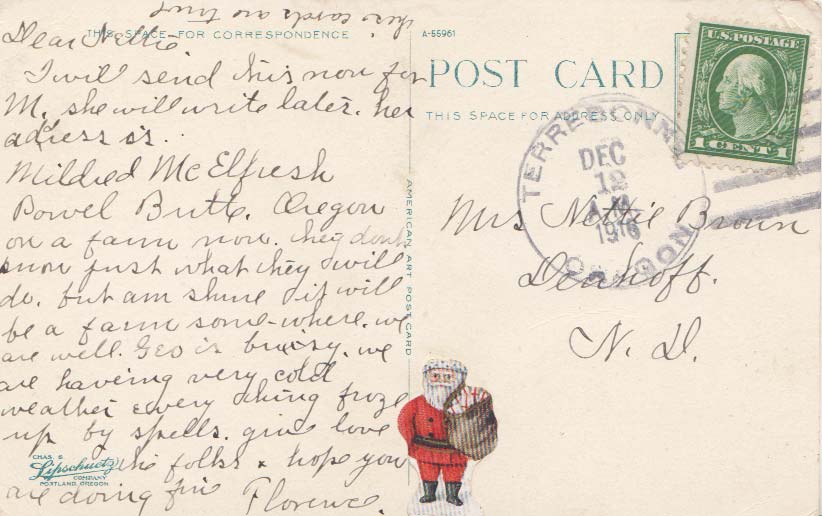 these cards are
THIS SPACE FOR CORRESPONDENCE
Dear Nettie.
I will send this now for
M. she will write later. her
address is.
Mildred McElfresh
Powel Butte. Oregon
on a farm now. they dont
know just what they will
do. but am shure it will
be a farm some-where. we
are well. Geo is buisy. we
are having very cold
weather every thing froze
up by spells. give love
the folks & hope you
are doing fine Florence.
CHAS. S.
Lipschuetz
COMPANY
PORTLAND, OREGON
AMERICAN ART POST CARD
A-55961
POST CARD
THIS SPACE FOR ADDRESS ONLY
U.S. POSTAGE
1 CENT 1
TERREBONNE
DEC
12
A.M.
1916
OREGON
Mrs Nettie Brown
Denhoff.
N. D.